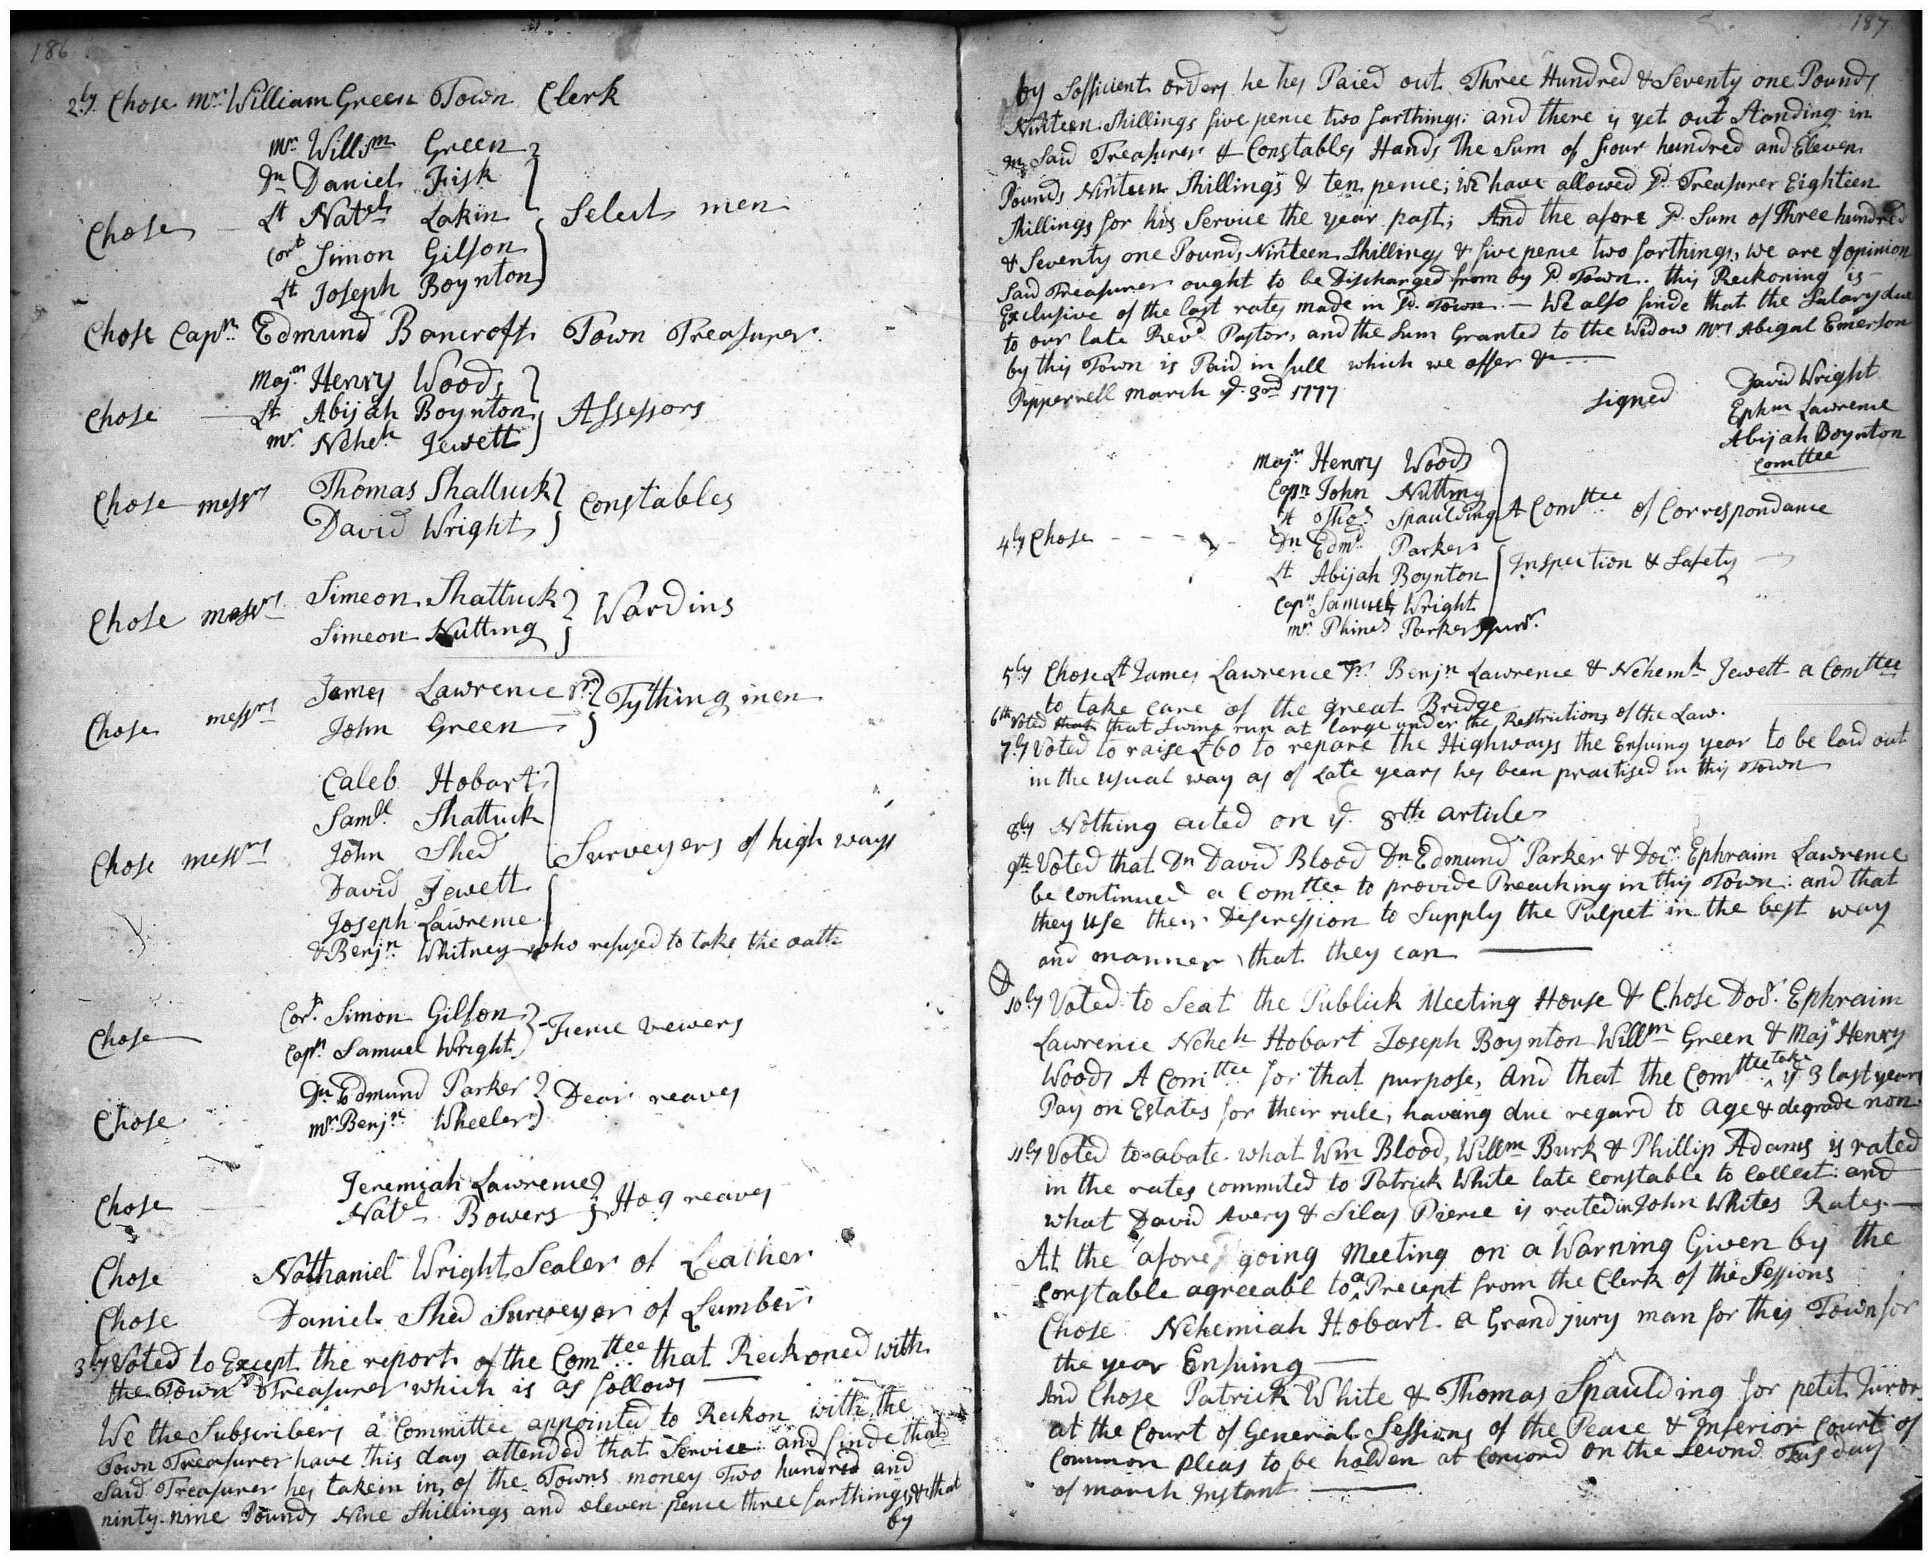 186
2ly Chose Mr William Green Town Clerk
Mr Willim Green
Dn Daniel Fisk
Chose Lt Natel Lakin Select men
Corp Simon Gilson
Lt Joseph Boynton
Chose Capn Edmund Bancroft Town Treasurer
Majr Henry Woods
Chose Lt Abijah Boynton Assessors
mr Neheh Jewett
Chose messrs Thomas Shattuck Constables
David Wright
Chose messrs Simeon Shattuck Wardins
Simeon Nutting
Chose messrs James Lawrence Jr Tything men
John Green
Caleb Hobart
Samll Shattuck
Chose messrs John Shed Surveyers of high ways
David Jewett
Joseph Lawrence
& Benjn Whitney who refused to take the oath
Chose Corp Simon Gilson Fience vewers
Capn Samuel Wright
Chose Dn Edmund Parker Dear reaves
mr Benjn Wheeler
Chose Jeremiah Lawrence Hog reaves
Natel Bowers
Chose Nathaniel Wright Sealer of Leather
Chose Daniel Shed Surveyer of Lumber
3ly Voted to Except the report of the Comttee that Reckoned with
the Town Treasurer which is as follows
We the Subscribers a Committee appointed to Reckon with the
Town Treasurer have this day attended that Service and finde that
Said Treasurer hes takein in, of the Towns money Two hundred and
ninty nine Pounds Nine Shillings and eleven pence three farthings, & that
by
187
by Sofficient orders he hes Paied out Three Hundred & Seventy one Pounds
Ninteen Shillings five pence two farthings: and there is yet out Standing in
Said Treasurer & Constables Hands The Sum of four hundred and Eleven
Pounds Ninteen Shillings & ten pence; We have allowed sd Treasurer Eighteen
Shillings for his Service the year past; And the afore sd Sum of Three hundred
& Seventy one Pounds Ninteen Shillings & five pence two farthings, we are of opinion
Said Treasurer ought to be Discharged from by sd Town. this Reckoning is
Exclusive of the last rates made in sd Town — We also finde that the Salary due
to our late Revd Pastor, and the Sum Granted to the Widow Mrs Abigal Emerson
by this Town is Paid in full which we offer &c
Pepperrell march ye 3rd 1777
signed David Wright
Ephm Lawrence
Abijah Boynton
Comttee
Majr Henry Woods
Capn John Nutting
Lt Thos Spaulding A Comttee of Correspondance
4ly Chose Dn Edmd Parker
Lt Abijah Boynton Inspection & Safety
Capn Samuel Wright
mr Phines Parker Junr
5ly Chose Lt James Lawrence Jr Benjn Lawrence & Nehemh Jewett a Comttee
to take care of the great Bridge
6th Voted that that Swine run at large under the Restrictions of the Law.
7ly Voted to raise £60 to repare the Highways the Ensuing year to be laid out
in the usual way as of Late years hes been practised in this Town
8ly Nothing acted on ye 8th article
9th Voted that Dn David Blood Dn Edmund Parker & Docr Ephraim Lawrence
be continued a Comttee to provide Preaching in this Town: and that
they use their Descression to Supply the Pulpet in the best way
and manner that they can
10ly Voted to Seat the Publick Meeting House & Chose Docr Ephraim
Lawrence Neheh Hobart Joseph Boynton Willm Green & Majr Henry
Woods A Comttee for that purpose, And that the Comttee take ye 3 last years
Pay on Estates for their rule, having due regard to Age & degrade non
11ly Voted to abate what Wm Blood, Willm Burk & Phillip Adams is rated
in the rates commited to Patrick White late Constable to Collect: and
what David Avery & Silas Pierce is rated in John Whites Rates
At the afore going Meeting on a Warning Given by the
Constable agreeable to a Precept from the Clerk of the Sessions
Chose Nehemiah Hobart a Grand jury man for this Town for
the year Ensuing
And Chose Patrick White & Thomas Spaulding for petit Juror
at the Court of General Sessions of the Peace & Inferior Court of
Common Pleas to be holden at Concord on the Second Tusday
of march Instant